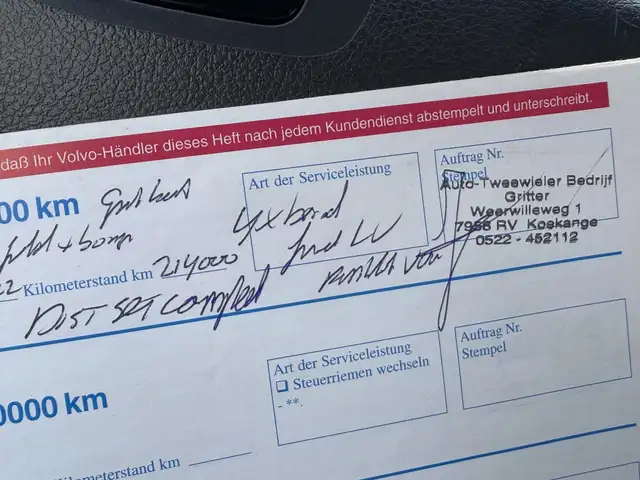 daß Ihr Volvo-Händler dieses Heft nach jedem Kundendienst abstempelt und unterschreibt.
00 km
Art der Serviceleistung
4x band
Auftrag Nr.
Stempel
Auto-Tweewieler Bedrijf
Gritter
Weerwilleweg 1
RV Koekange
0522 - 452112
Kilometerstand km 214000
DIST SET compleet
0000 km
Art der Serviceleistung
❑ Steuerriemen wechseln
- **.
Auftrag Nr.
Stempel
Kilometerstand km